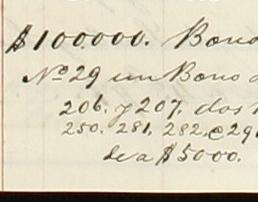 $100.000. Bono
Nº 29 un Bono
206. y 207. dos
250. 281, 282, e 29
de a $5000.